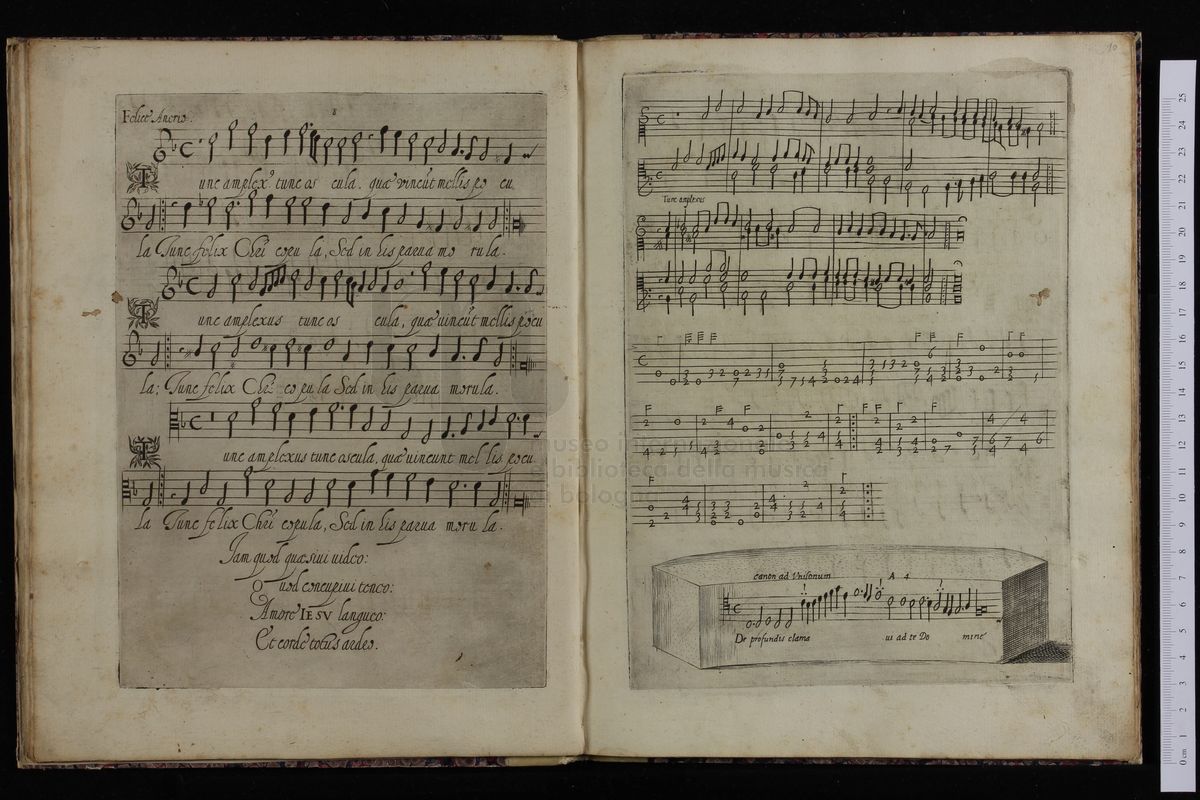 Felice Anerio.
8
Tunc amplexꝰ tunc os cula. quæ vincūt mellis po cu
la Tunc felix Chrī copu la, Sed in his parua mo ru la.
Tunc amplexus tunc os cula, quæ uincūt mellis pocu
la: Tunc felix Chrī co pu la Sed in his parua morula.
Tunc amplexus tunc oscula, quæ uincunt mel lis pocu
la Tunc felix Chrī copula, Sed in his parua moru la.
Iam quod quæsiui uideo:
Quod concupiui teneo:
Amore IESV langueo:
Et corde totus ardeo.
10
Tunc amplexus
canon ad Vnisonum A 4
De profundis clama ui ad te Do mine
museo internazionale
e biblioteca della musica
di bologna
0 cm 1 2 3 4 5 6 7 8 9 10 11 12 13 14 15 16 17 18 19 20 21 22 23 24 25